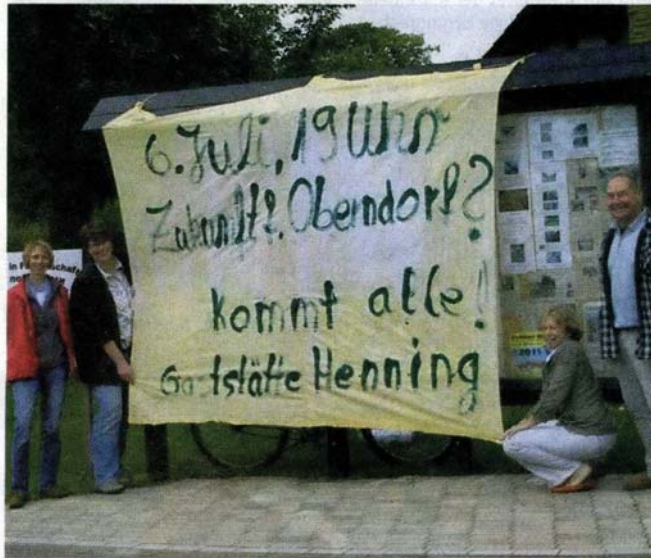 6. Juli, 19 Uhr
Zukunft f. Oberndorf?
Kommt alle!
Gaststätte Henning
2011